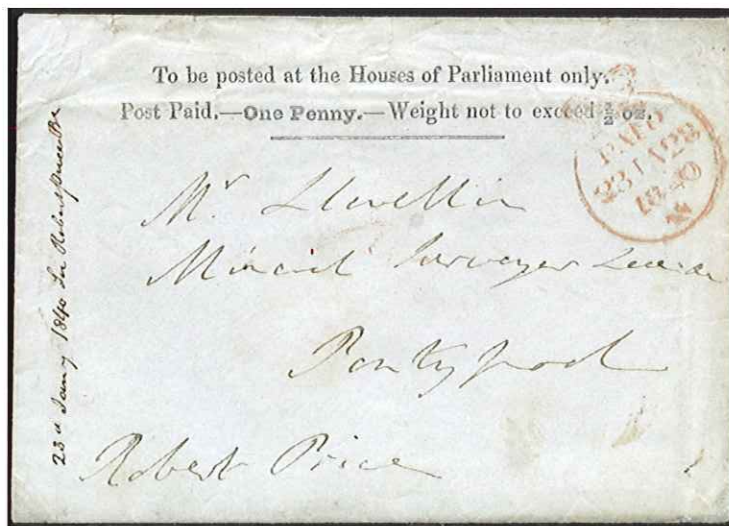 To be posted at the Houses of Parliament only.
Post Paid.—One Penny.—Weight not to exceed ½ oz.
PAID
23 JA 23
1840
Mr Llewellin
Mineral Surveyor
Pontypool
Robert Price
23d Jany 1840 Sir Robert Price Bt